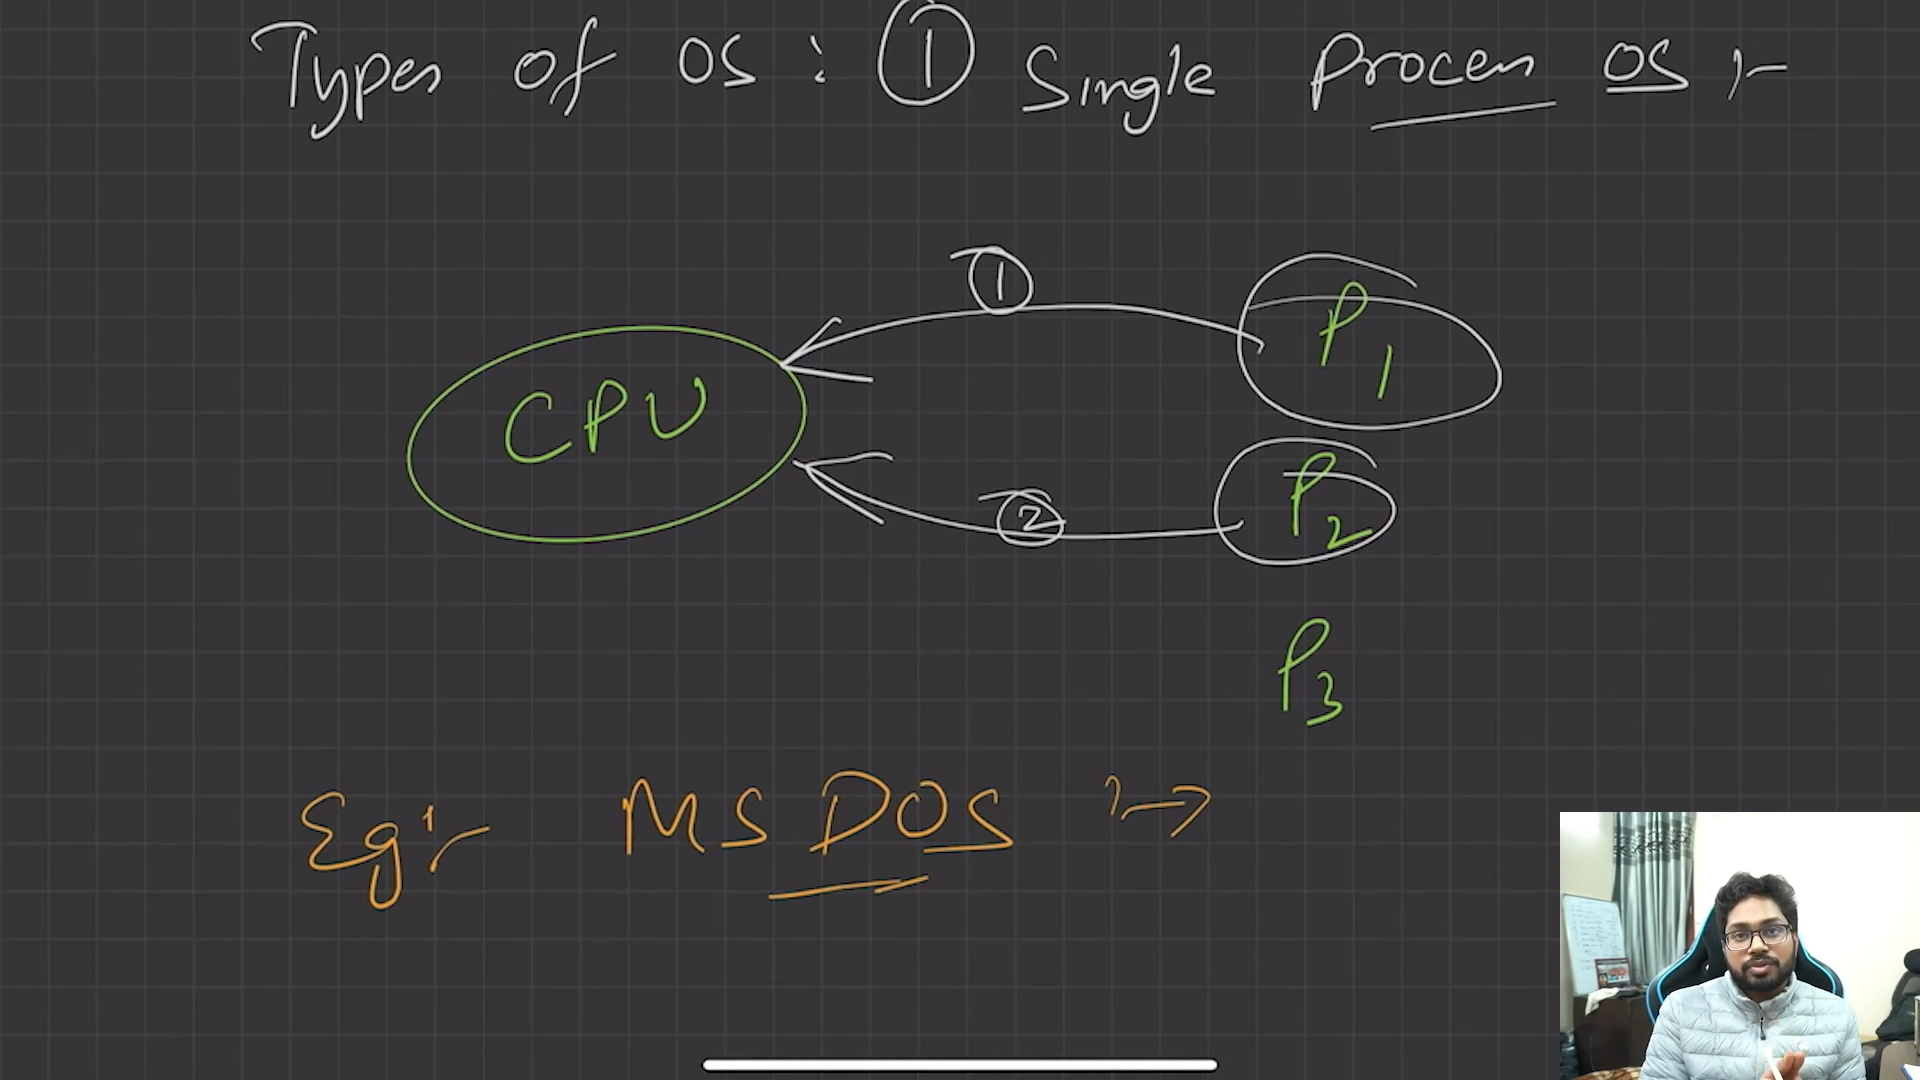 Types of OS : ① Single Process OS :-
①
P1
CPU
②
P2
P3
Eg :- MS DOS :→